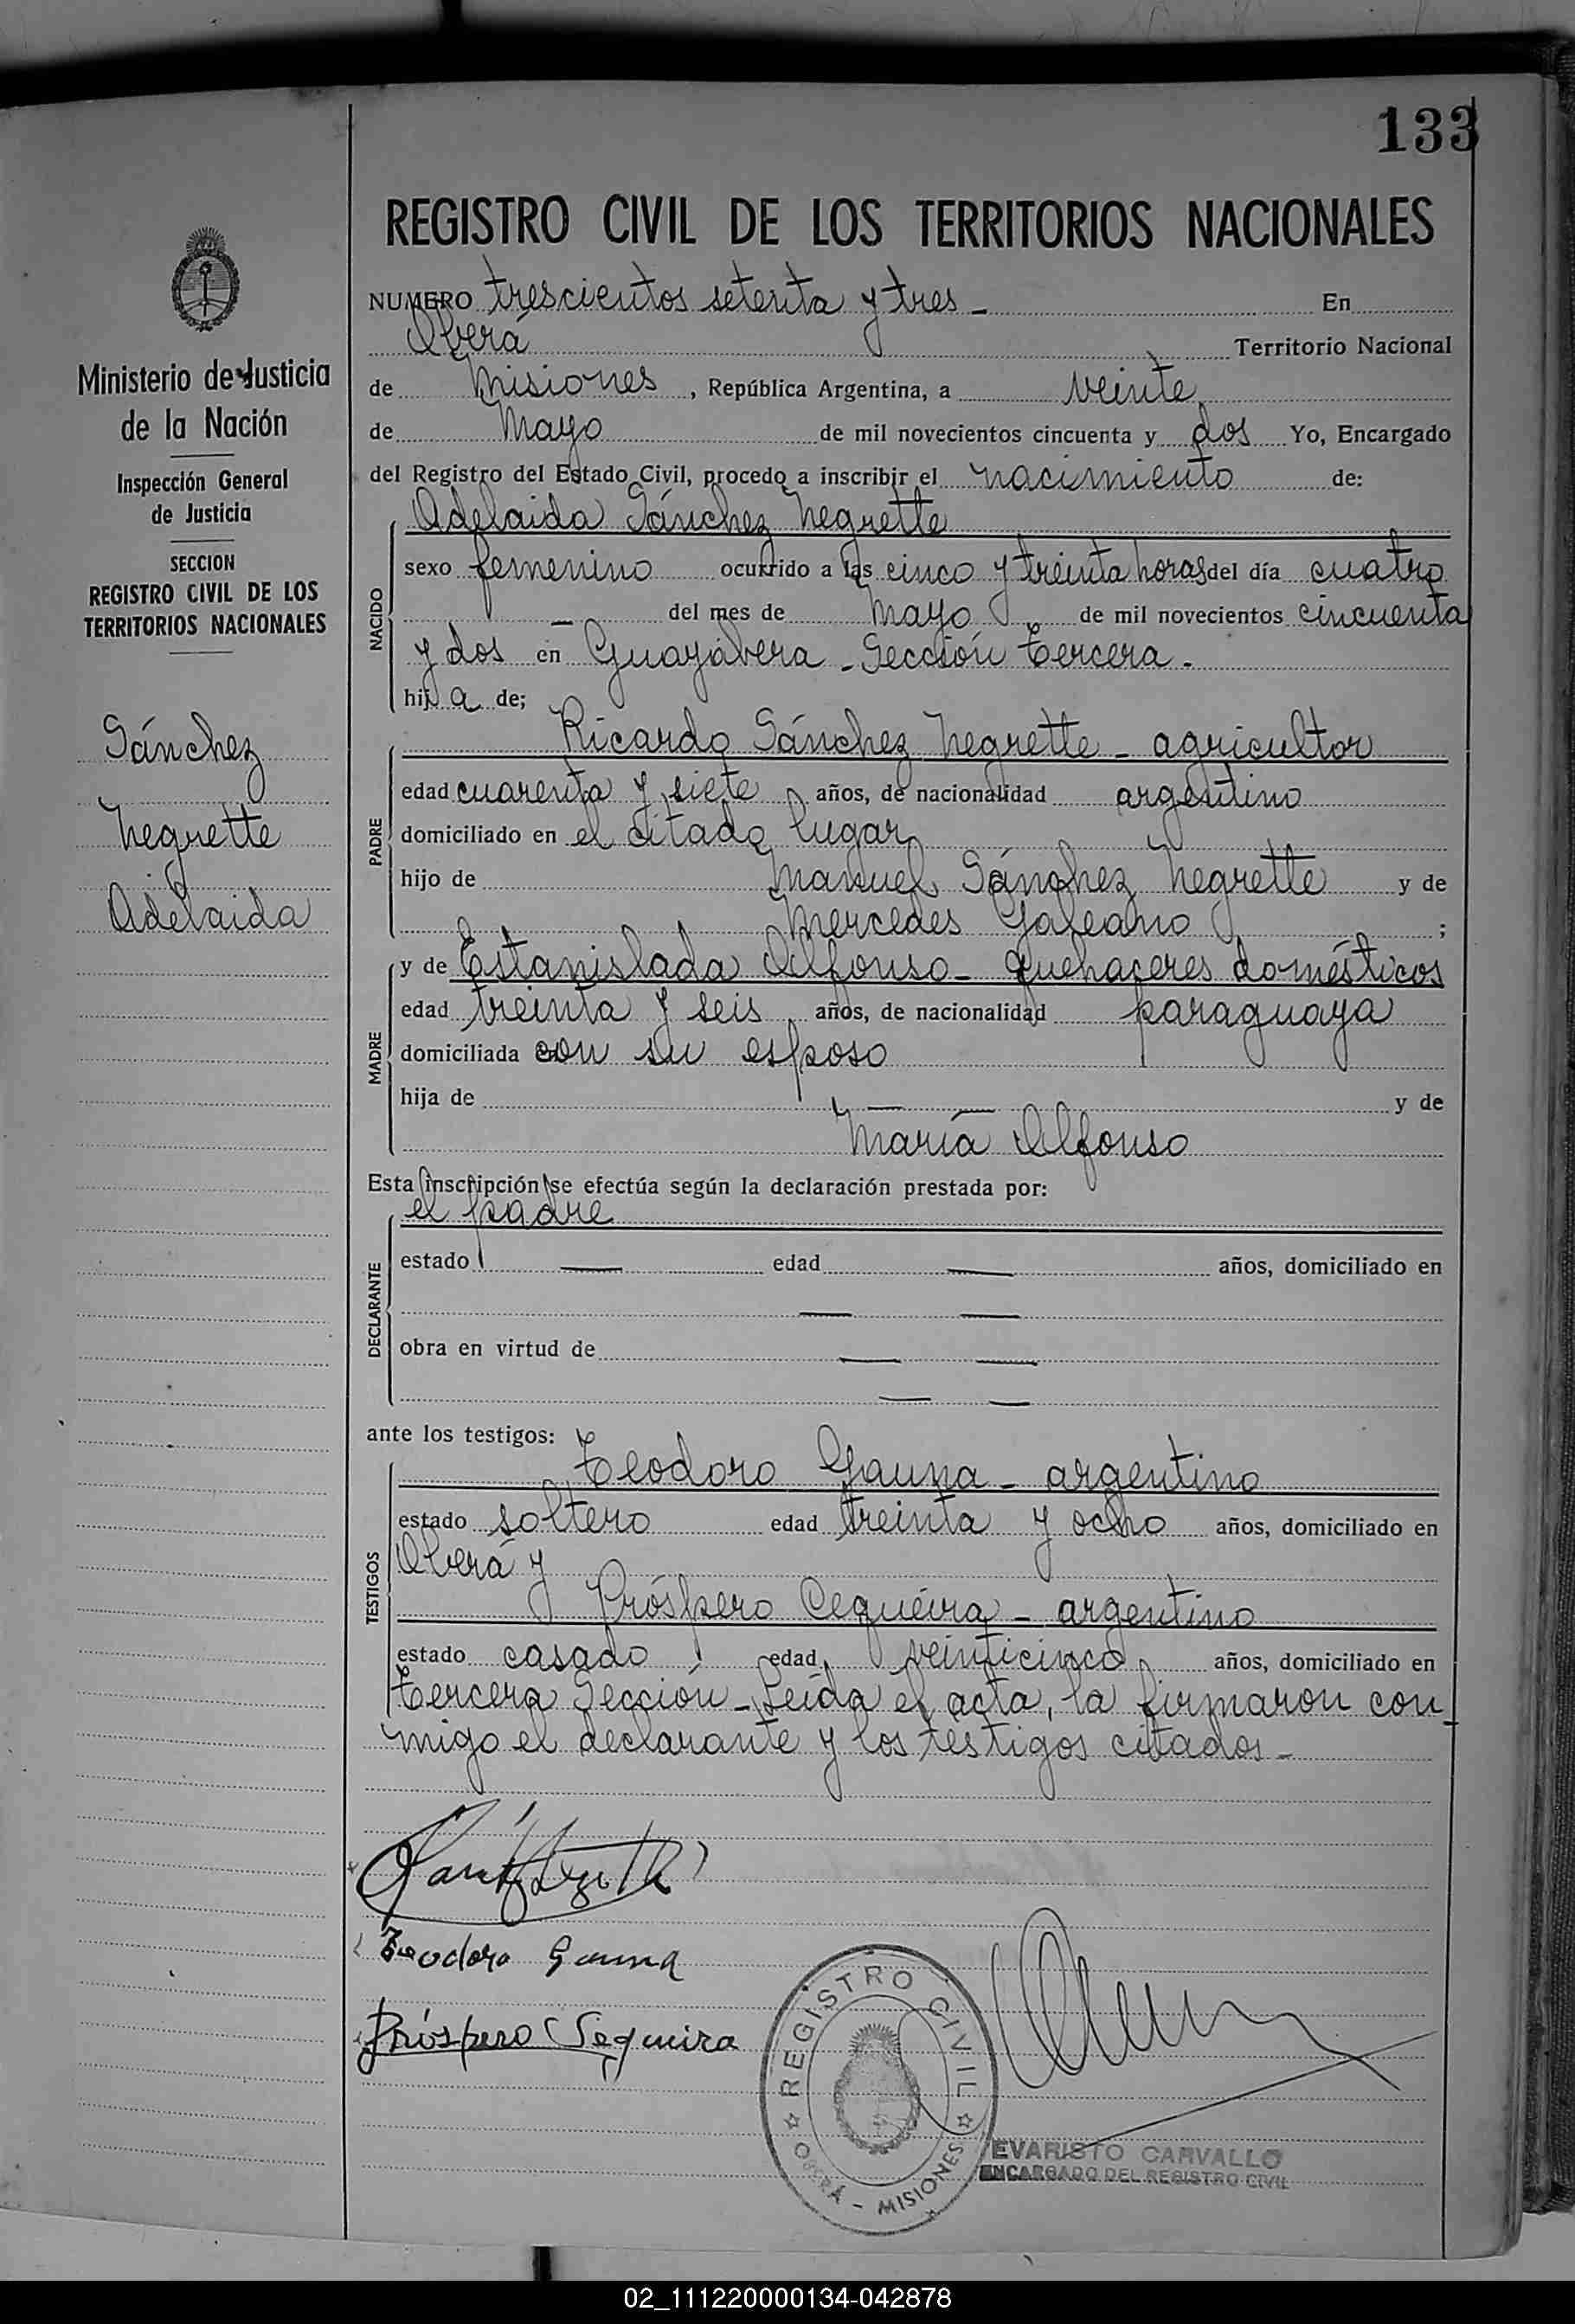 133
REGISTRO CIVIL DE LOS TERRITORIOS NACIONALES
Ministerio de Justicia
de la Nación
Inspección General
de Justicia
SECCION
REGISTRO CIVIL DE LOS
TERRITORIOS NACIONALES
Sánchez
Negrette
Adelaida
NUMERO trescientos setenta y tres - En
Oberá Territorio Nacional
de Misiones, República Argentina, a veinte
de Mayo de mil novecientos cincuenta y dos Yo, Encargado
del Registro del Estado Civil, procedo a inscribir el nacimiento de:
NACIDO
Adelaida Sánchez Negrette
sexo femenino ocurrido a las cinco y treinta horas del día cuatro
— del mes de Mayo de mil novecientos cincuenta
y dos en Guayabera - Sección tercera -
hija de;
PADRE
Ricardo Sánchez Negrette - agricultor
edad cuarenta y siete años, de nacionalidad argentino
domiciliado en el citado lugar
hijo de Manuel Sánchez Negrette y de
Mercedes Galeano ;
MADRE
y de Estanislada Alfonso - quehaceres domésticos
edad treinta y seis años, de nacionalidad paraguaya
domiciliada con su esposo
hija de — — y de
María Alfonso
Esta inscripción se efectúa según la declaración prestada por:
DECLARANTE
el padre
estado — edad — años, domiciliado en
— —
obra en virtud de — —
— —
ante los testigos:
TESTIGOS
Teodoro Gauna - argentino
estado soltero edad treinta y ocho años, domiciliado en
Oberá y
Próspero Cequeira - argentino
estado casado edad veinticinco años, domiciliado en
tercera Sección - Leída el acta, la firmaron con-
migo el declarante y los testigos citados -
Teodoro Gauna
Próspero Sequeira
REGISTRO CIVIL
OBERÁ - MISIONES
EVARISTO CARVALLO
ENCARGADO DEL REGISTRO CIVIL
02_111220000134-042878